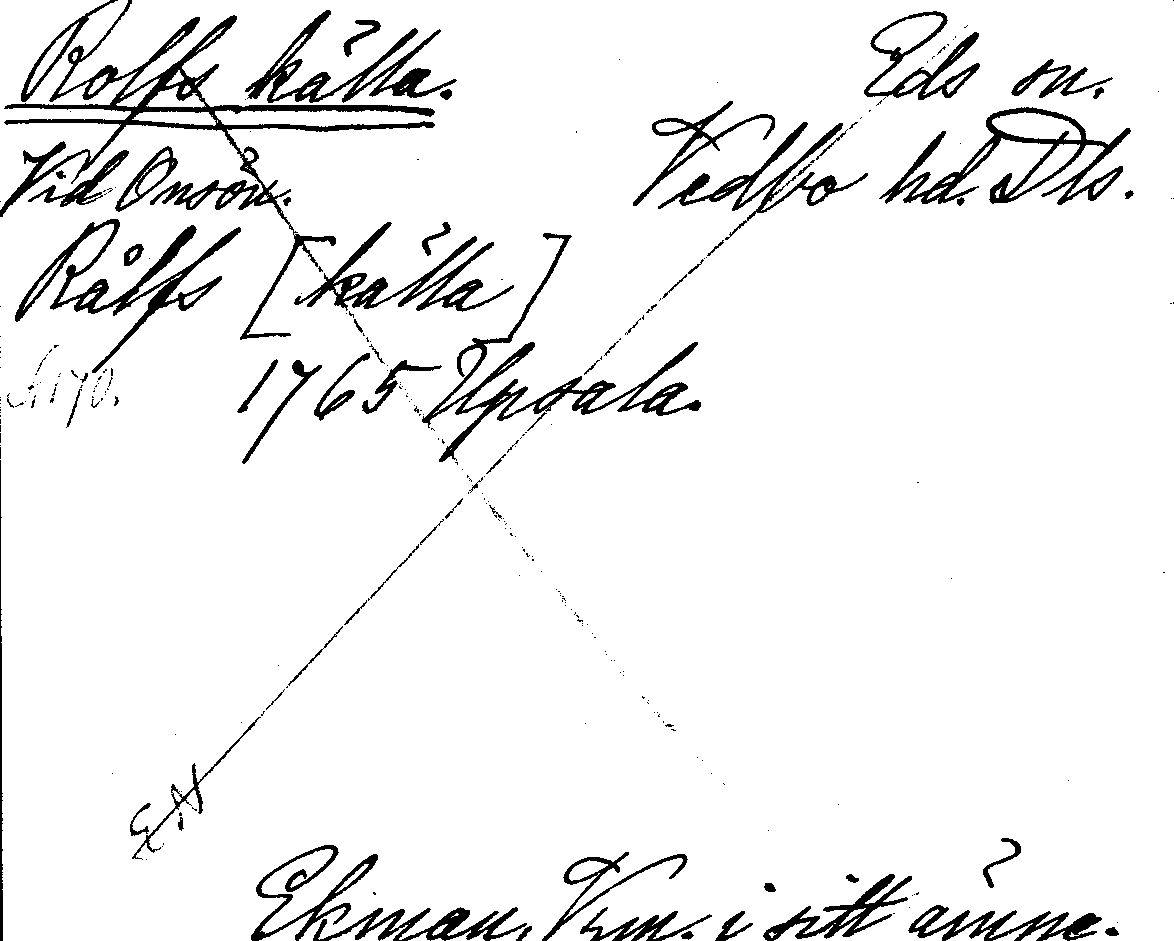 Rolfs källa. Eds sn.
Vedbo hd. Dls.
Vid Onsön.
Rålfs [källa]
s. 170. 1765 Upsala.
EN
Ekman, Vrm. i sitt ämne.